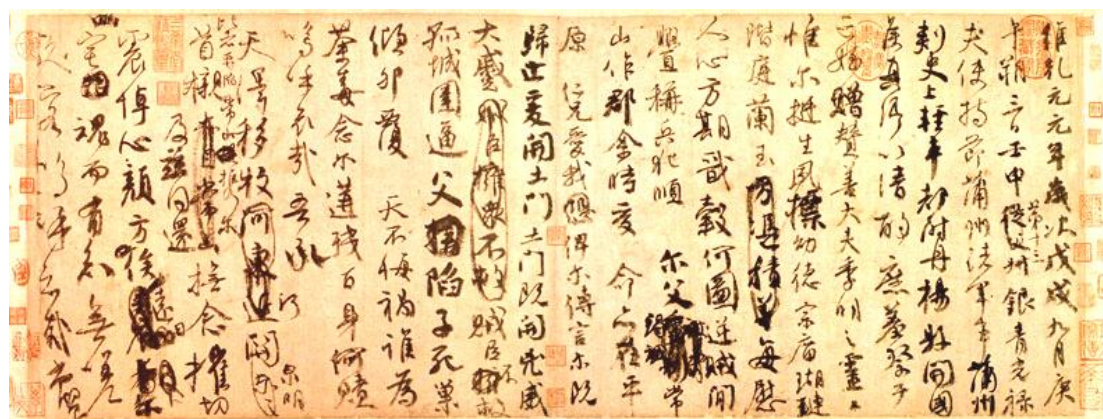 維乾元元年歲次戊戌九月庚
午朔三日壬申第十三叔銀青光祿
夫使持節蒲州諸軍事蒲州
刺史上輕車都尉丹楊縣開國
侯真卿以清酌庶羞祭于
亡姪贈贊善大夫季明之靈曰
惟爾挺生夙標幼德宗廟瑚璉
階庭蘭玉方憑積善每慰
人心方期戩穀何圖逆賊間
釁稱兵犯順 爾父竭誠常
山作郡余時受命亦在平
原仁兄愛我俾爾傳言爾既
歸止爰開土門土門既開凶威
大蹙賊臣擁衆不救賊臣不救
孤城圍逼父陷子死巢
傾卵覆 天不悔禍誰為
荼毒念爾遘殘百身何贖
嗚乎哀哉吾承
天澤移牧河關泉明
比者再陷常山攜爾
首櫬及茲同還撫念摧切
震悼心顏方俟遠日卜爾
幽宅魂而有知無嗟
久客嗚呼哀哉尚饗